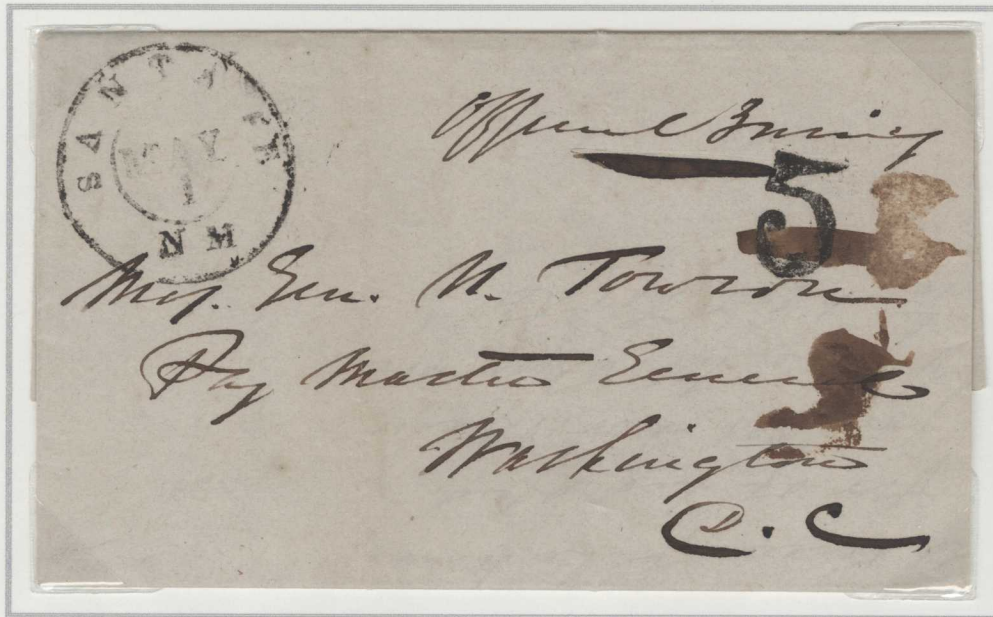 SANTA FE
MAY
1
NM
Official Business
5
Maj. Gen. N. Towson
Pay Master General
Washington
D. C